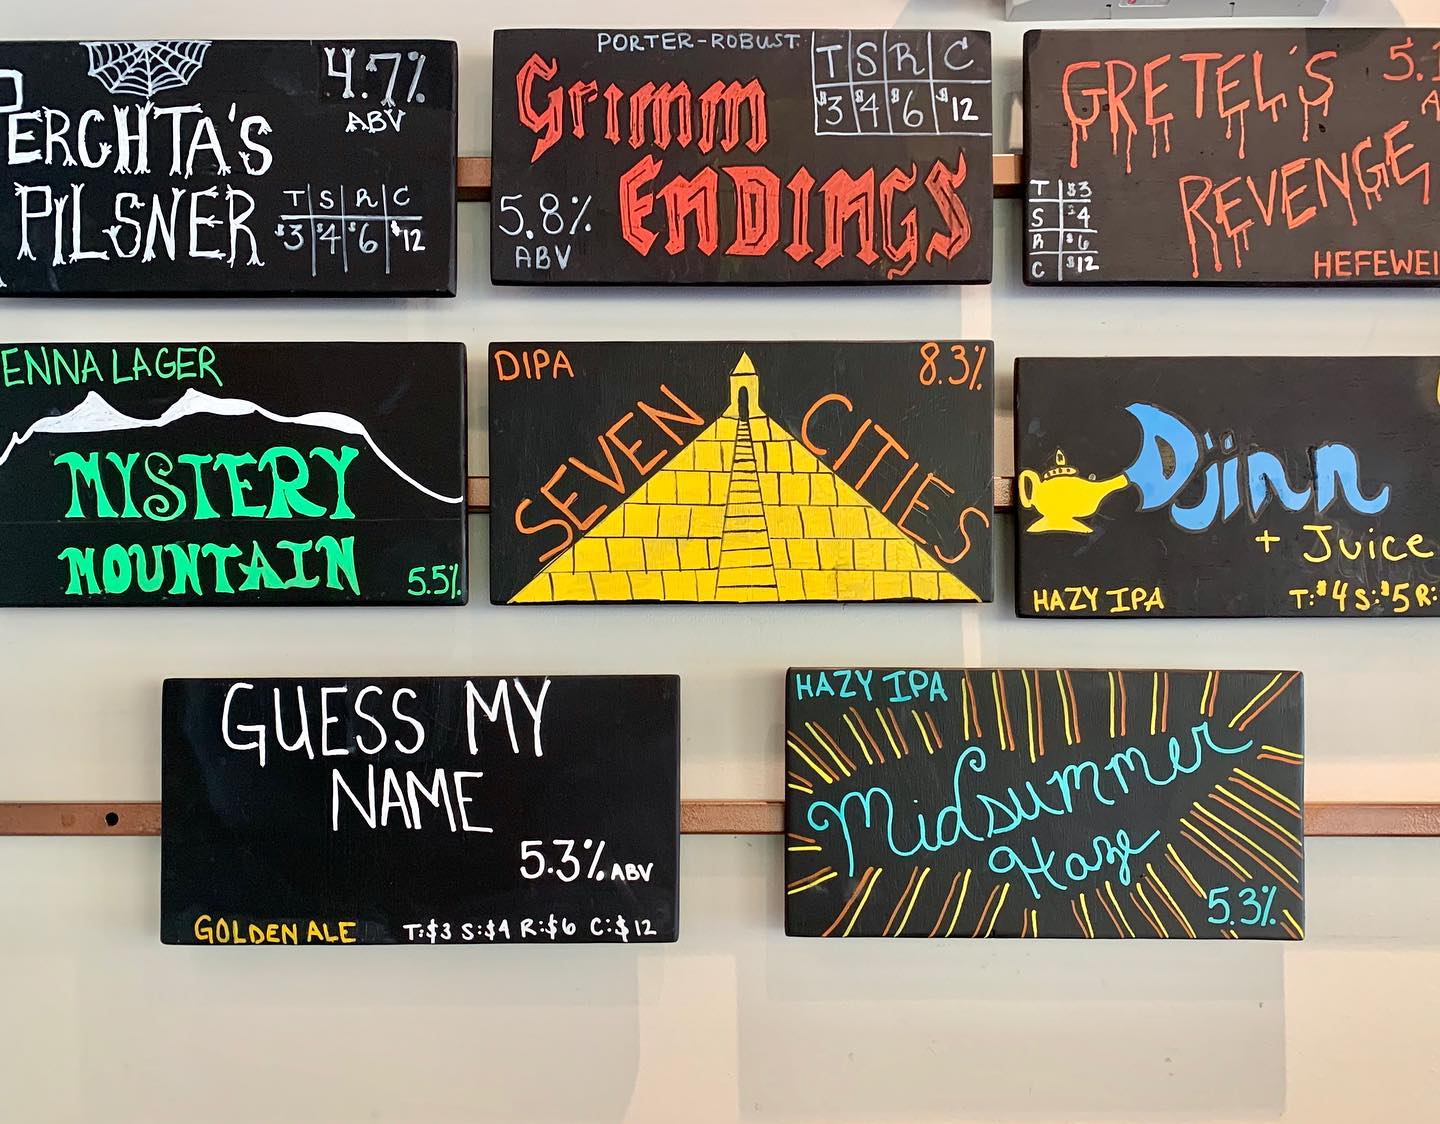 PERCHTA'S
PILSNER
4.7%
ABV
T S R C
$3 $4 $6 $12
PORTER-ROBUST
Grimm
ENDINGS
5.8%
ABV
T S R C
$3 $4 $6 $12
GRETEL'S
REVENGE
T $3
S $4
R $6
C $12
ENNA LAGER
MYSTERY
MOUNTAIN
5.5%
DIPA
8.3%
SEVEN CITIES
Djinn
+ Juice
HAZY IPA
T:$4 S:$5 R:
GUESS MY
NAME
5.3% ABV
GOLDEN ALE
T:$3 S:$4 R:$6 C:$12
HAZY IPA
Midsummer
Haze
5.3%